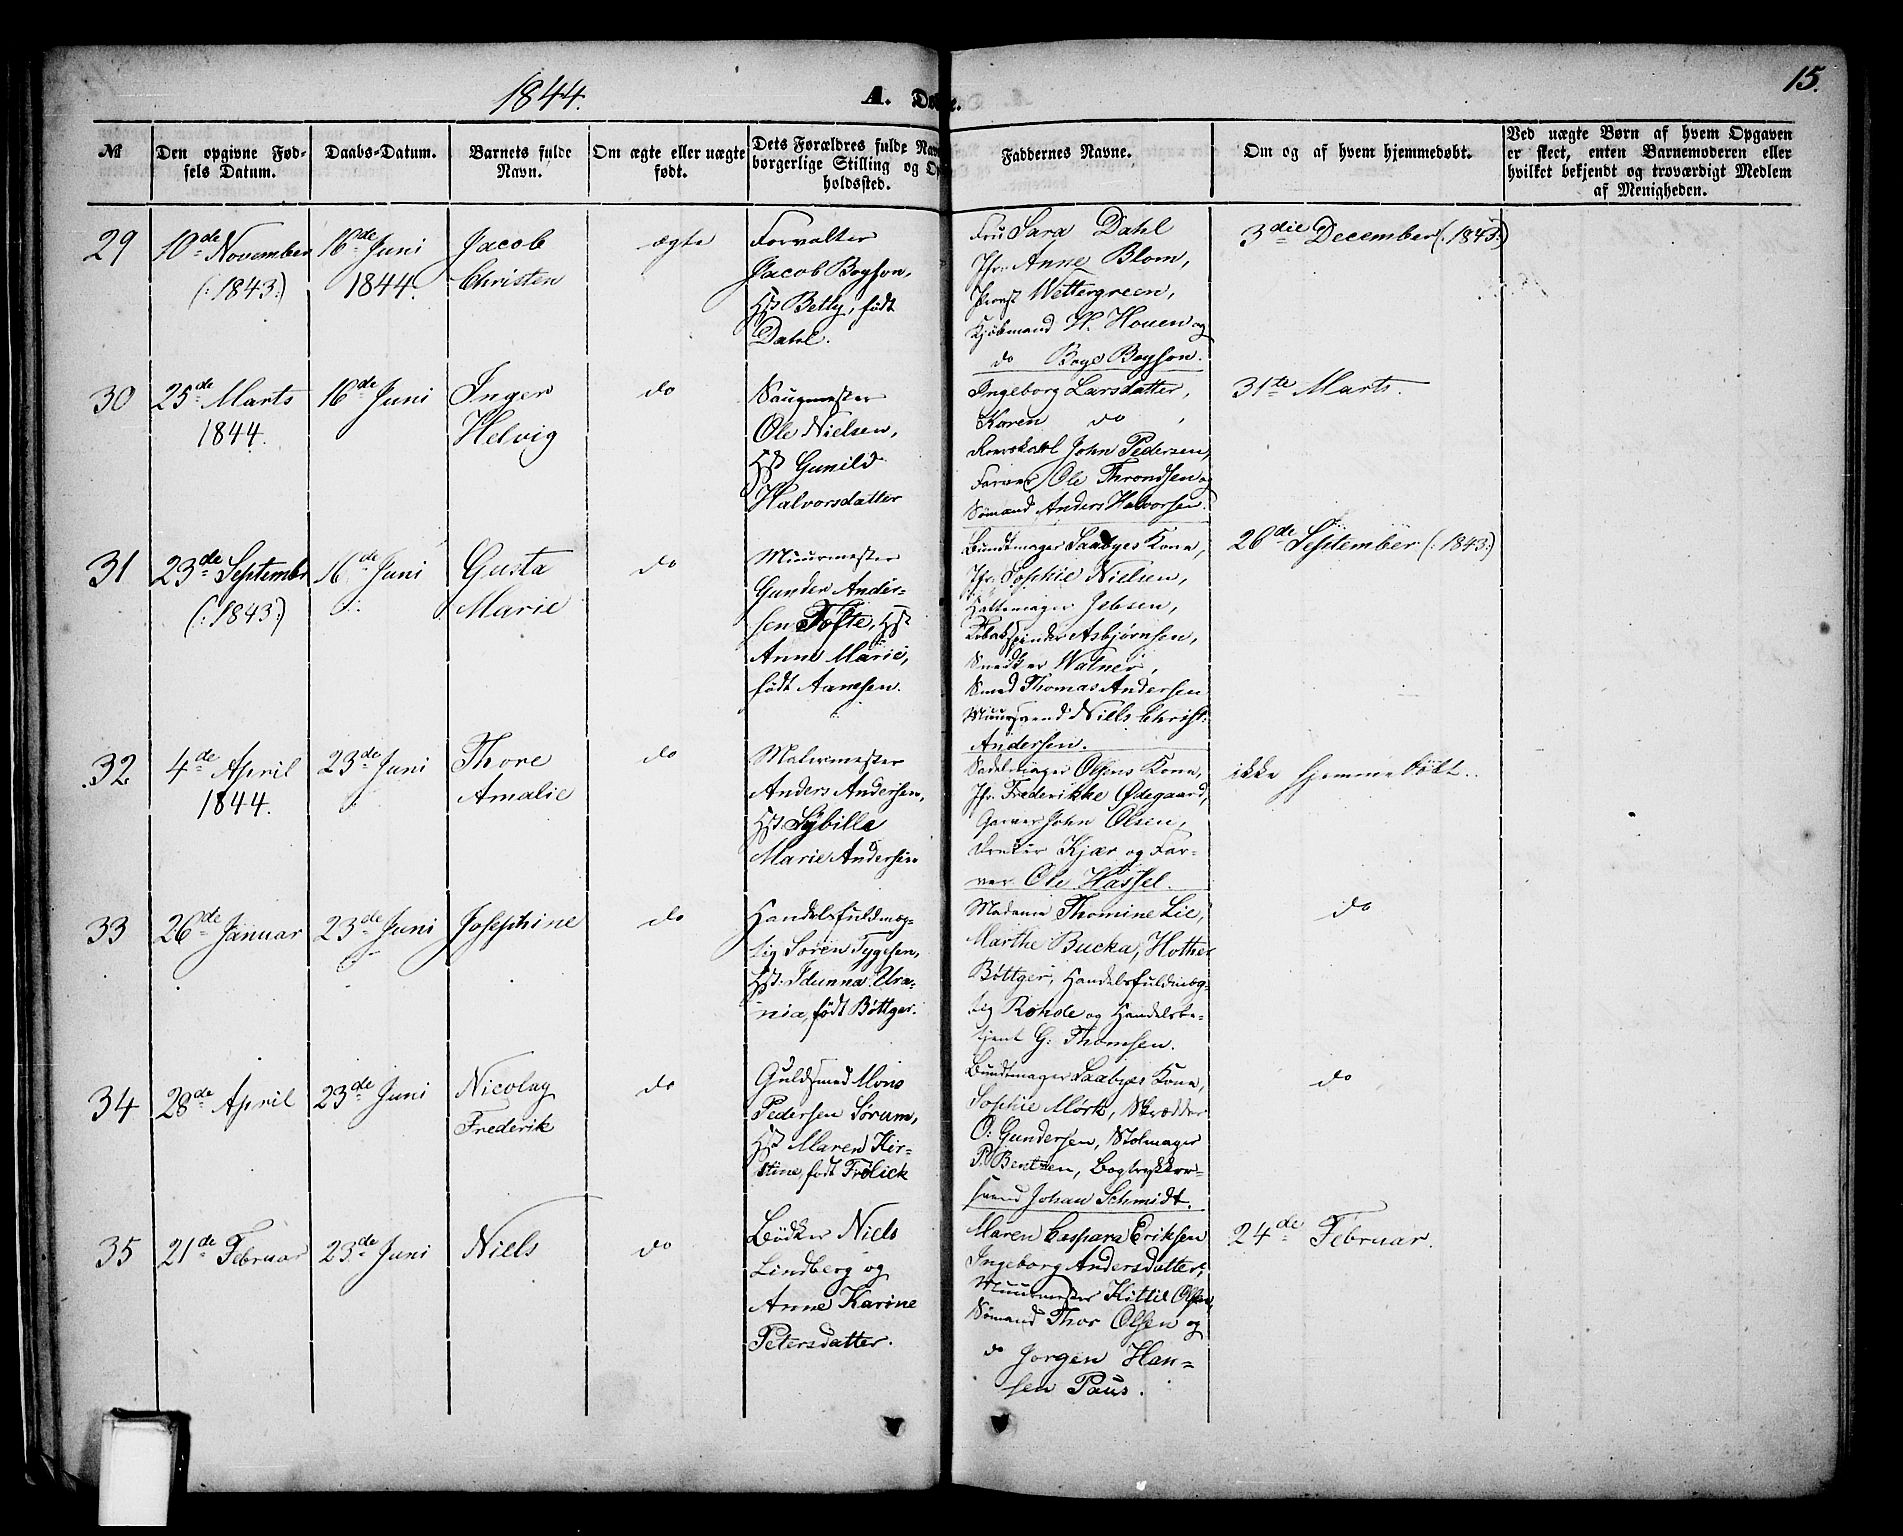 1844.
A.
15.
№
Den opgivne Fød-
sels Datum.
Daabs-Datum.
Barnets fulde
Navn.
Om ægte eller uægte
født.
Dets Forældres fulde Nav
borgerlige Stilling og Op
holdssted.
Faddernes Navne.
Om og af hvem hjemmedøbt.
Ved uægte Børn af hvem Opgaven
er skeet, enten Barnemoderen eller
hvilket bekjendt og troværdigt Medlem
af Menigheden.
29
10de November
(:1843:)
16de Juni
1844.
Jacob
Christen
ægte
Forvalter
Jacob Boyson,
Hst Betty, født
Dahl.
Fru Sara Dahl
Jfr. Anne Blom,
Provst Wettergreen,
Kjøbmand H. Houen og
do Boye Boyson.
3die December (:1843:)
30
25de Marts
1844.
16de Juni
Inger
Helvig
do
Saugmester
Ole Nielsen,
Hst Gunild
Halvorsdatter
Ingeborg Larsdatter,
Karen do,
John Pedersen,
Farver Ole Throndsen og
Sømand Anders Halvorsen.
31te Marts.
31
23de Septembr
(:1843:)
16de Juni
Gusta
Marie
do
Muurmester
Gunder Ander-
sen Tofte, Hst
Anne Marie,
født Aamsen.
Bundtmager Saabyes Kone,
Jfr. Sophie Nielsen,
Hattemager Jebsen,
Tobaksspinder Asbjørnsen,
Snedker Watner,
Smed Thomas Andersen
Muursvend Niels Christ:
Andersen.
26de September (:1843:)
32
4de April
1844.
23de Juni
Thore
Amalie
do
Malermester
Anders Andersen,
Hst. Sybille
Marie Andersen
Sadelmager Olsens Kone,
Jfr. Frederikke Ødegaard,
Garver John Olsen,
Dreier Kjær og Far-
ver Ole Hassel.
ikke hjemmedøbt.
33
26de Januar
23de Juni
Josephine
do
Handelsfuldmæg-
tig Søren Tygesen,
Hst. Idunna Ura-
nia, født Bøttger.
Madame Thomine Lie,
Marthe Bucka, Hother
Bøttger, Handelsfuldmæg-
tig Rohde og Handelsbe-
tjent G. Thomsen.
do
34
28de April
23de Juni
Nicolay
Frederik
do
Guldsmed Mons
Pedersen Sørum,
Hst Maren Kir-
stine, født Frølick
Bundtmager Saabyes Kone,
Sophie Mørk, Skrædder
O. Gundersen, Stolmager
P. Bentzen, Bogtrykker-
svend Johan Schmidt.
do
35
21de Februar
23de Juni
Niels
do
Bødker Niels
Lindberg og
Anne Karine
Petersdatter.
Maren Caspara Eriksen
Ingeborg Andersdatter,
Muurmester Kittil Olsen,
Sømand Thor Olsen og
do Jørgen Han-
sen Paus.
24de Februar.